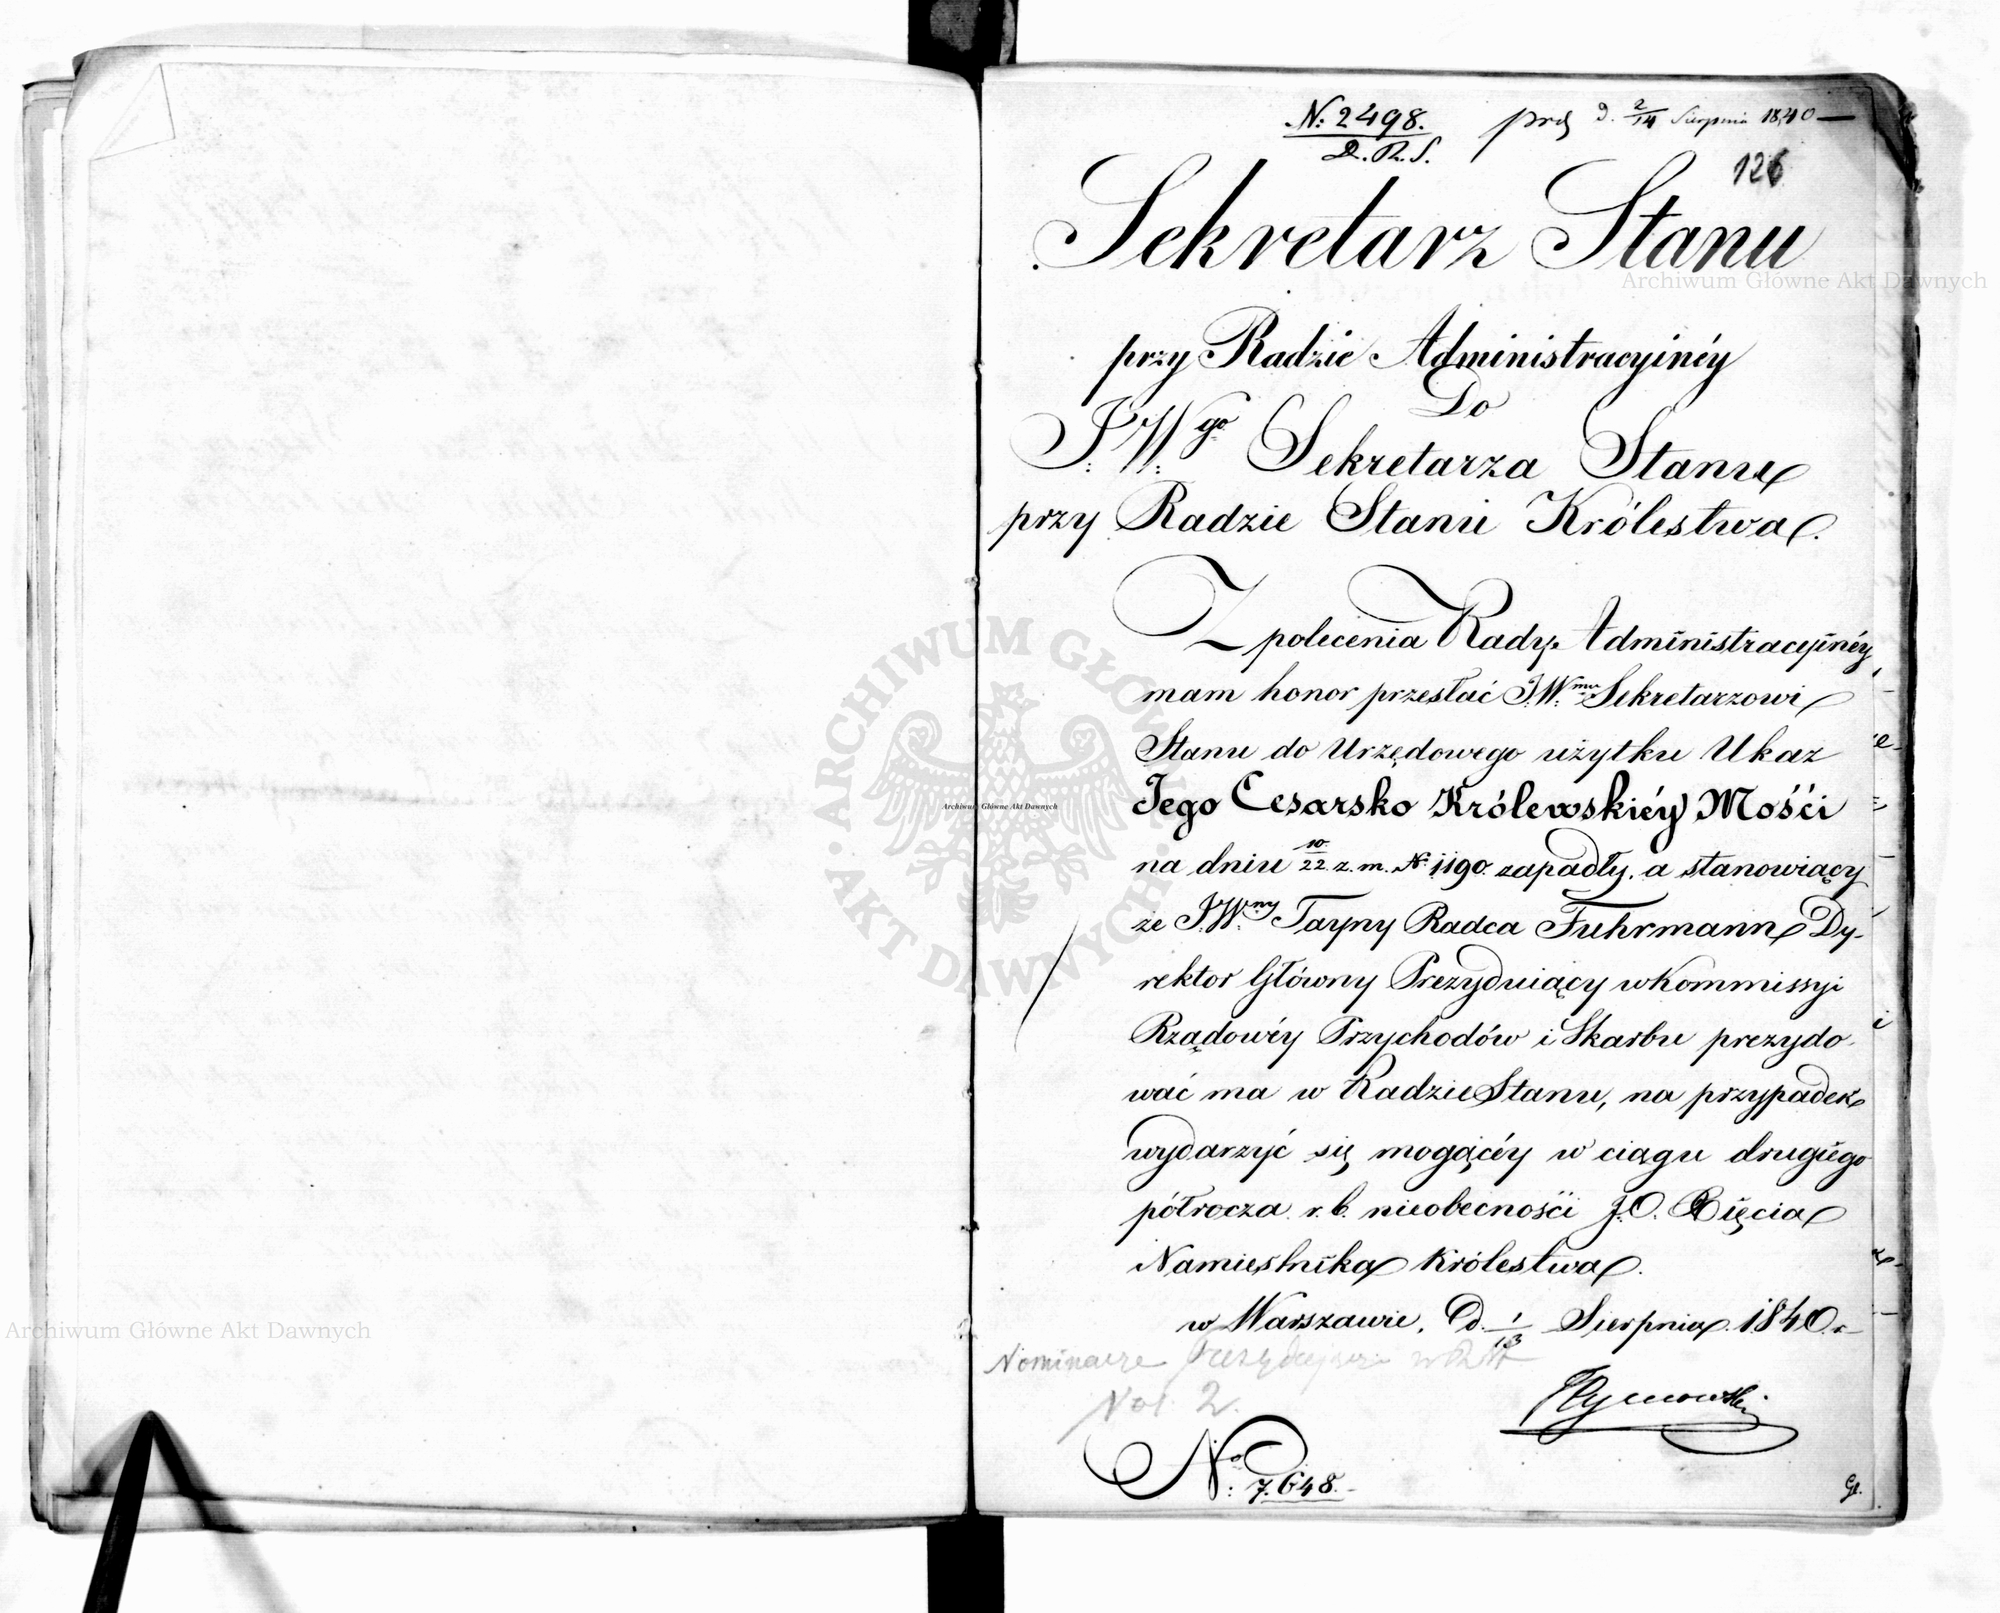 N: 2498. prs d. 2/14 Sierpnia 1840
D.R.S.
126
Sekretarz Stanu
przy Radzie Administracyinéy
Do
J:W:go Sekretarza Stanu
przy Radzie Stanu Królestwa.
Z polecenia Rady Administracyinéy
mam honor przesłać J.W.mu Sekretarzowi
Stanu do Urzędowego użytku Ukaz
Jego Cesarsko Królewskiéy Mości
na dniu 10/22 z.m. N: 1190. zapadły, a stanowiący
że J.W.ny Tayny Radca Fuhrmann Dy-
rektor Główny Prezyduiący w Kommissyi
Rządowéy Przychodów i Skarbu prezydo-
wać ma w Radzie Stanu, na przypadek
wydarzyć się mogącéy w ciągu drugiego
półrocza r.b. nieobecności J.O. Xięcia
Namiestnika Królestwa.
w Warszawie, d. 1/13 Sierpnia 1840 r.
Nominacye
Vol. 2.
Tymowski
No: 7.648.
Gl.
Archiwum Główne Akt Dawnych
Archiwum Główne Akt Dawnych
Archiwum Główne Akt Dawnych
ARCHIWUM GŁÓWNE
AKT DAWNYCH